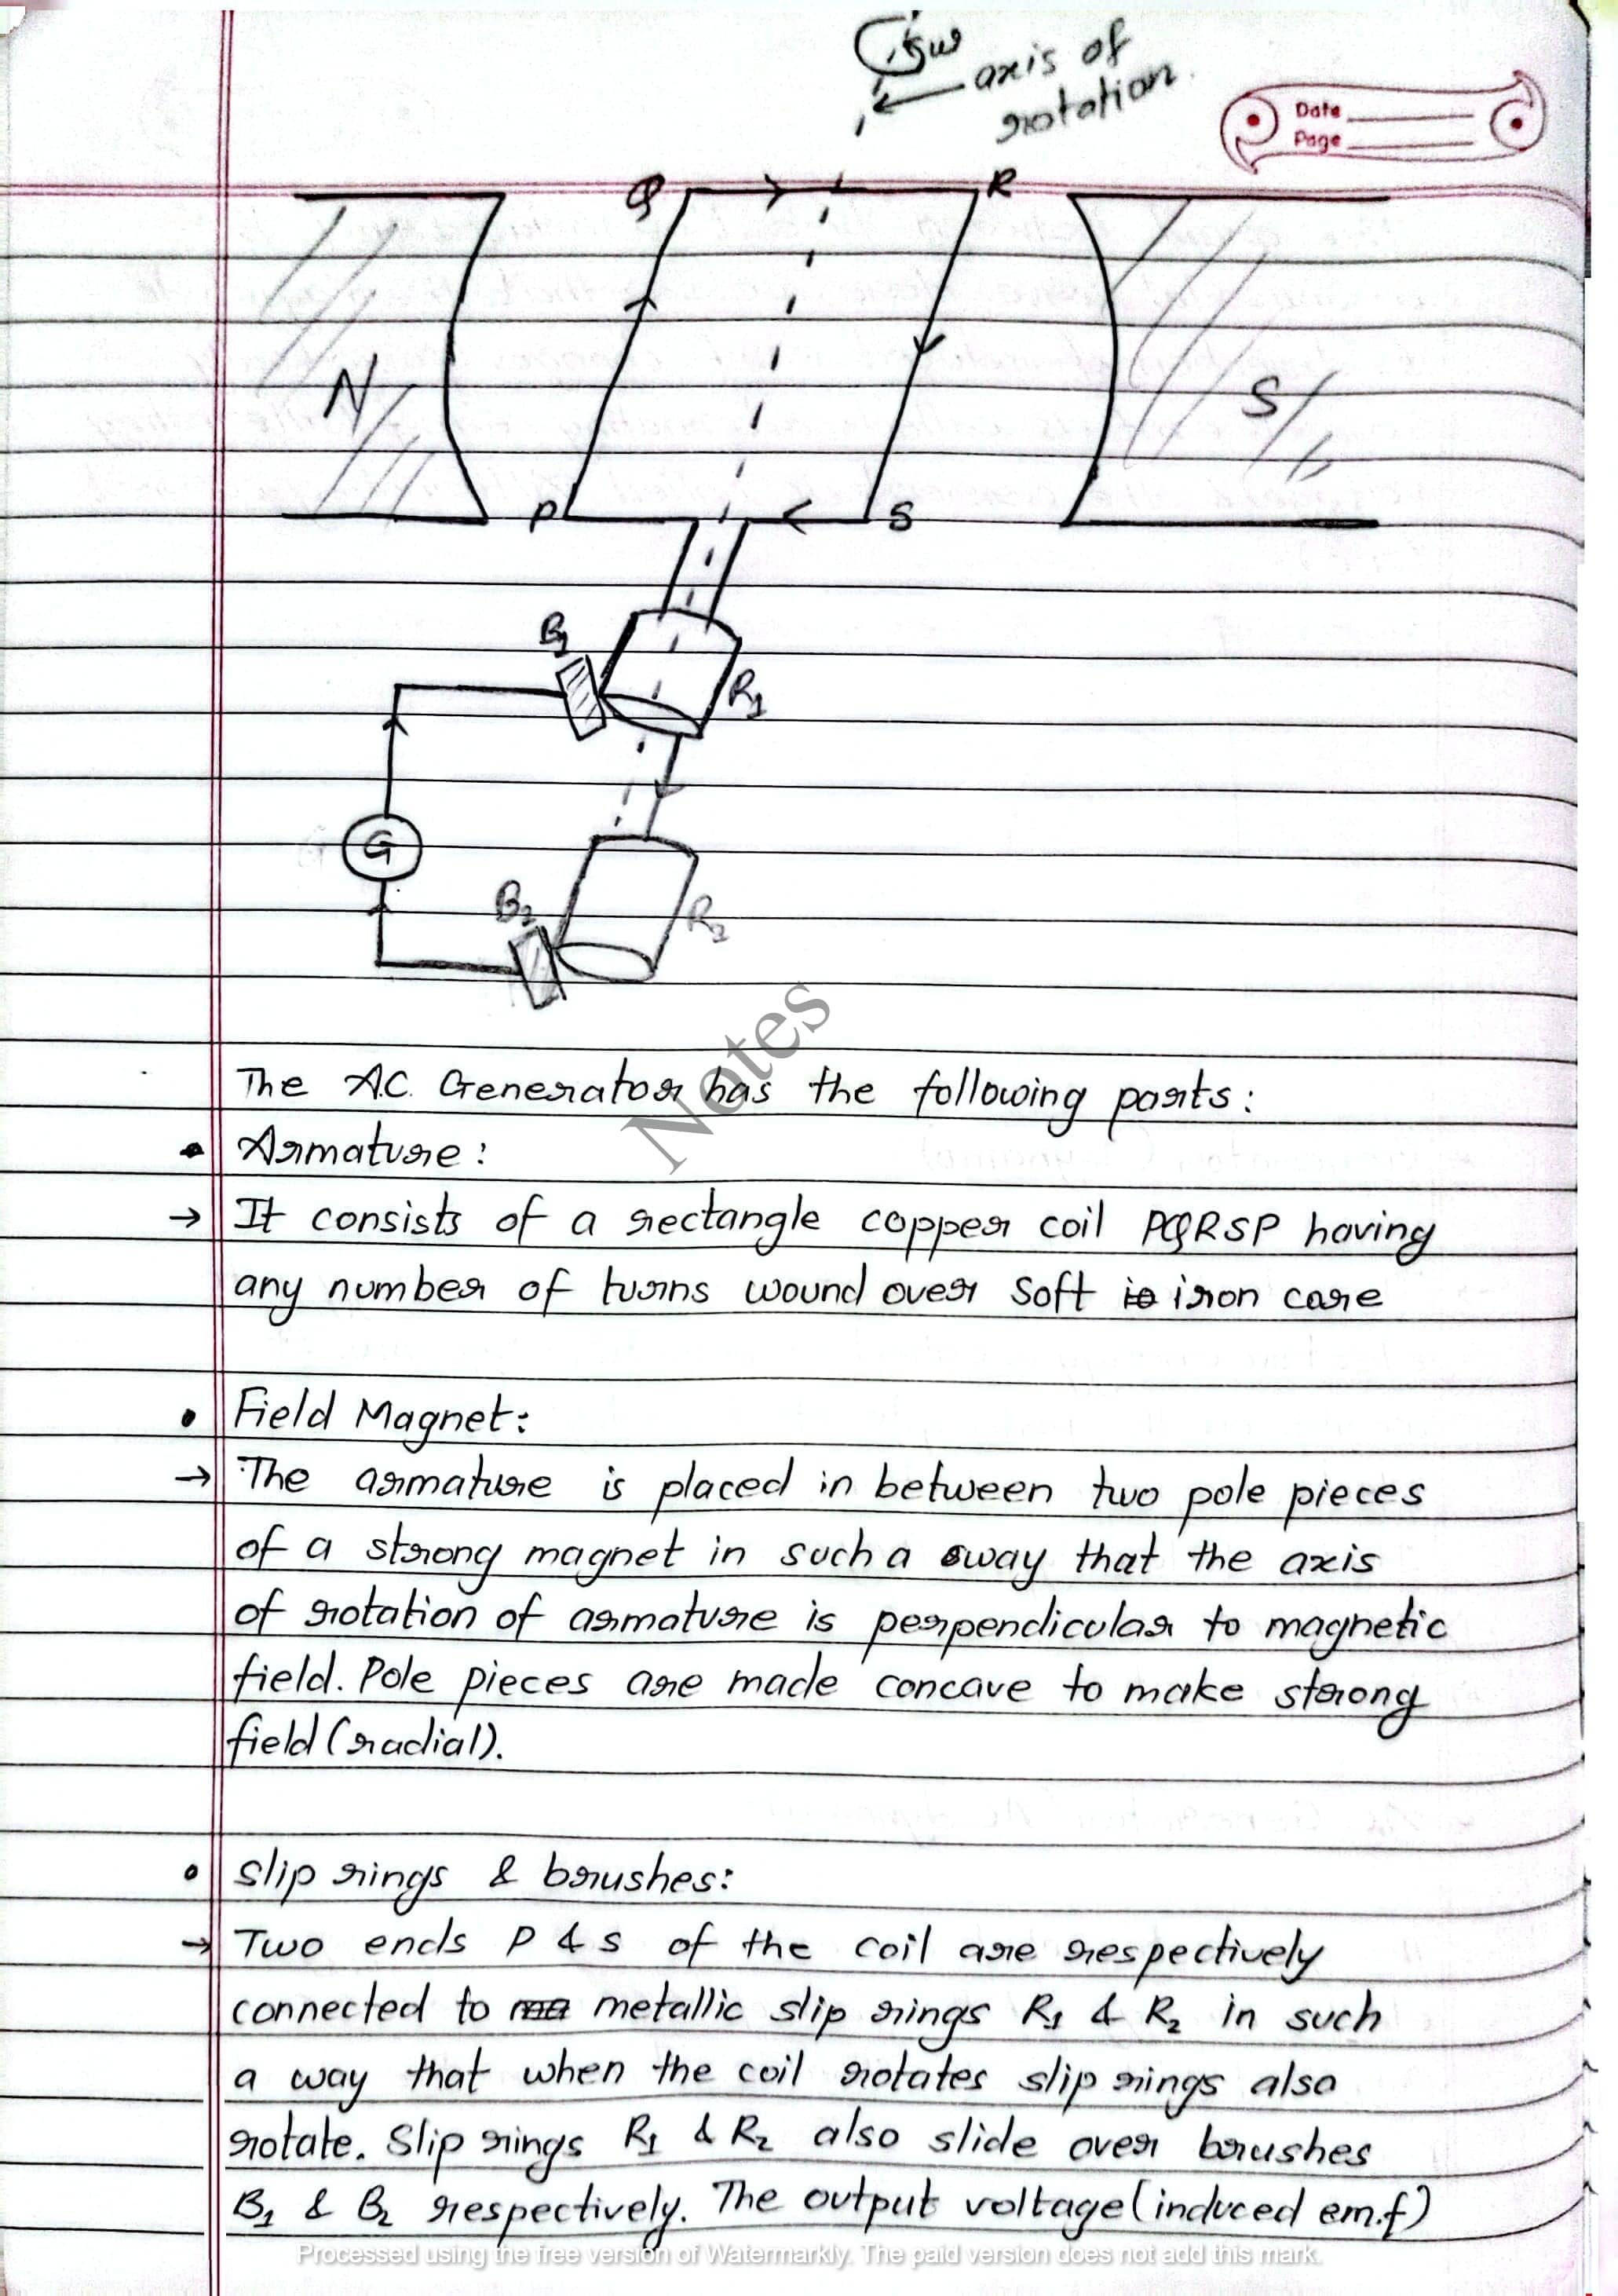 axis of
rotation.
Date
Page
Q
R
N
S
P
S
B1
R1
G
B2
R2
Notes
The A.C. Generator has the following parts:
• Armature:
→ It consists of a rectangle copper coil PQRSP having
any number of turns wound over soft iron core
• Field Magnet:
→ The armature is placed in between two pole pieces
of a strong magnet in such a way that the axis
of rotation of armature is perpendicular to magnetic
field. Pole pieces are made concave to make strong
field (radial).
• Slip rings & brushes:
→ Two ends P & S of the coil are respectively
connected to metallic slip rings R1 & R2 in such
a way that when the coil rotates slip rings also
rotate. Slip rings R1 & R2 also slide over brushes
B1 & B2 respectively. The output voltage (induced em.f)
Processed using the free version of Watermarkly. The paid version does not add this mark.